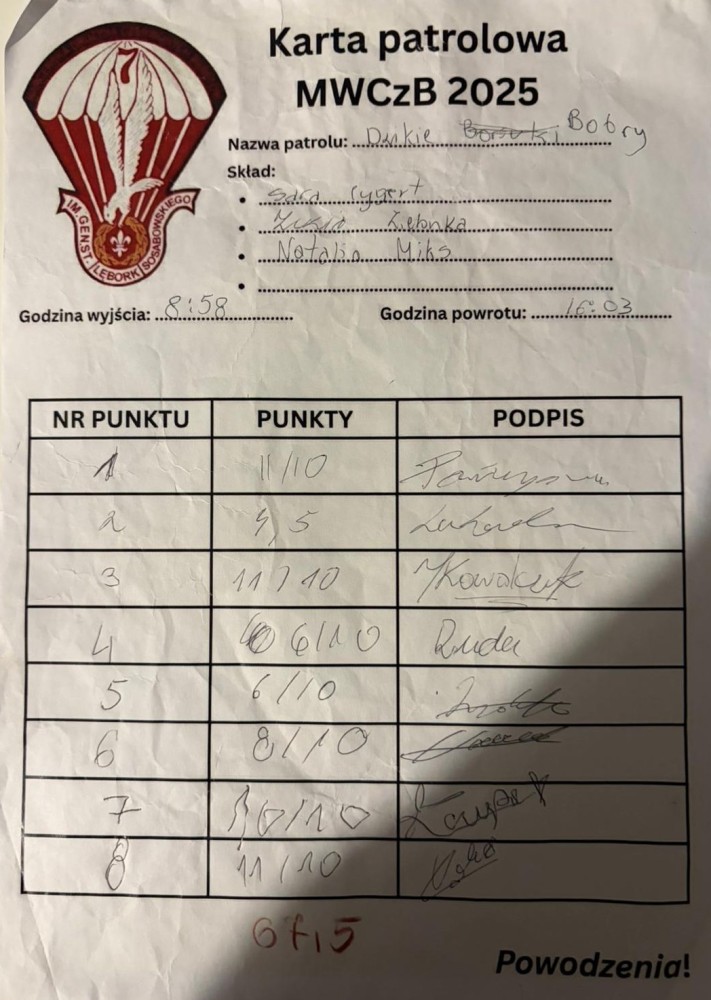 7
IM. GEN ST. SOSABOWSKIEGO
LĘBORK
Karta patrolowa
MWCzB 2025
Nazwa patrolu: Dzikie Bobry
Skład:
• Sara Cygert
• Zuzia
• Natalia Miks
•
Godzina wyjścia: 8:58 Godzina powrotu: 16:03
NR PUNKTU PUNKTY PODPIS
1 11/10
2 4,5
3 11/10 MKowalczyk
4 6/10 Ruda
5 6/10
6 8/10
7 10/10
8 11/10
67,5
Powodzenia!